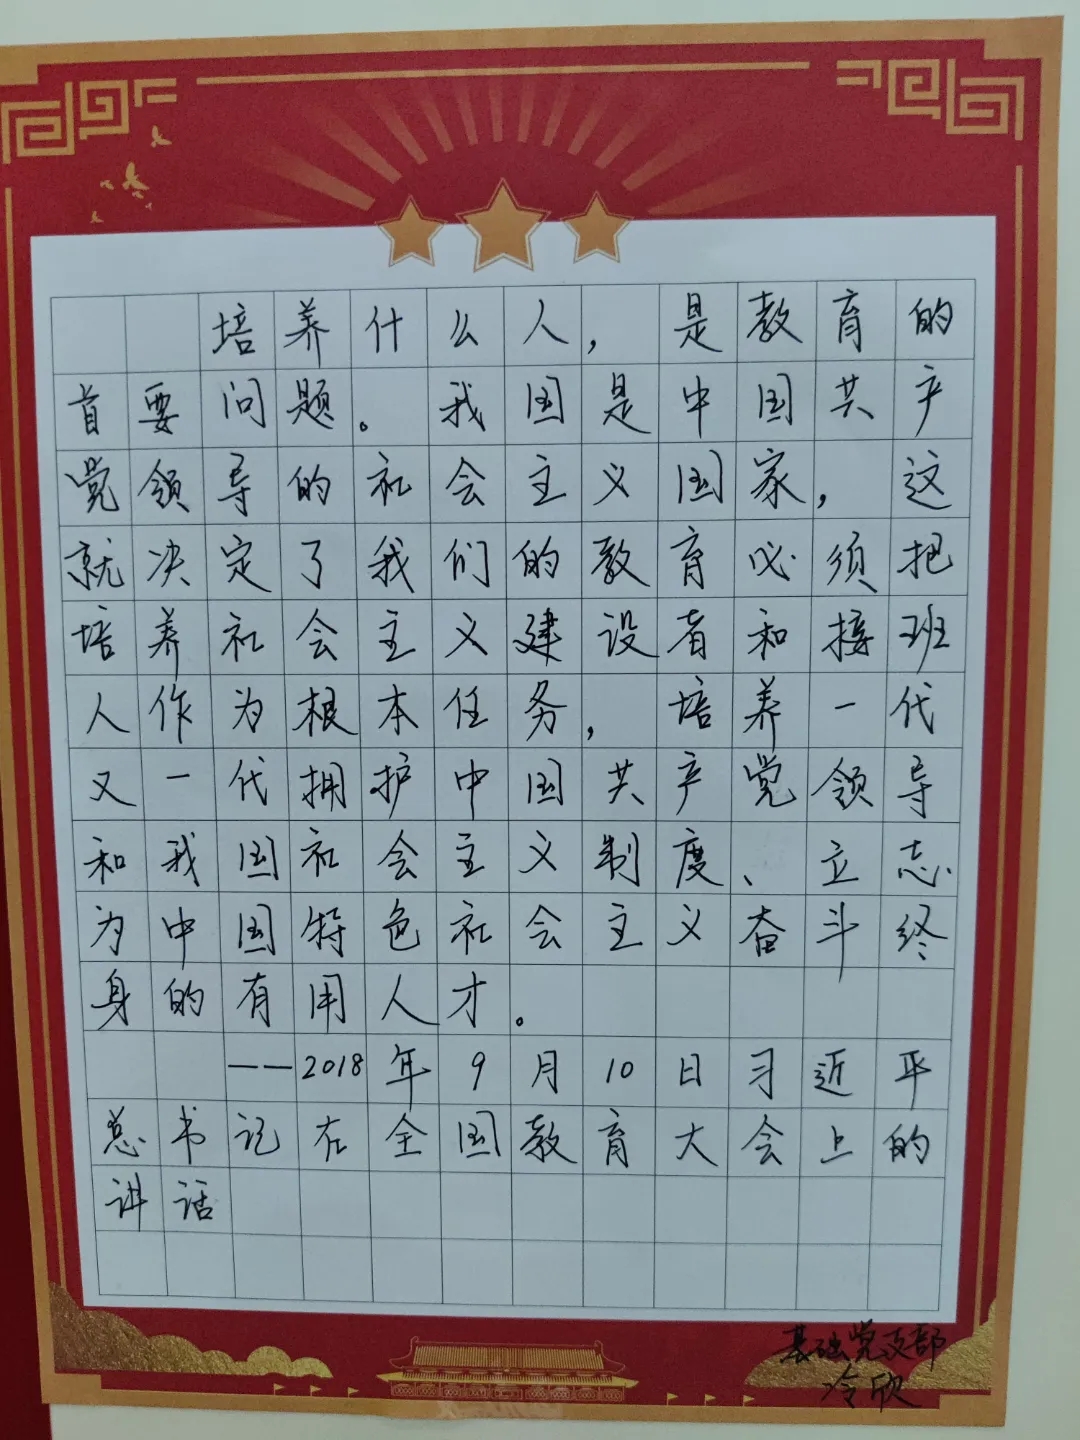 培养什么人，是教育的
首要问题。我国是中国共产
党领导的社会主义国家，这
就决定了我们的教育必须把
培养社会主义建设者和接班
人作为根本任务，培养一代
又一代拥护中国共产党领导
和我国社会主义制度、立志
为中国特色社会主义奋斗终
身的有用人才。
——2018年9月10日习近平
总书记在全国教育大会上的
讲话
基础党支部
冷欣